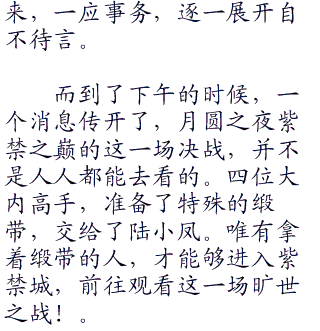 来，一应事务，逐一展开自
不待言。
而到了下午的时候，一
个消息传开了，月圆之夜紫
禁之巅的这一场决战，并不
是人人都能去看的。四位大
内高手，准备了特殊的缎
带，交给了陆小凤。唯有拿
着缎带的人，才能够进入紫
禁城，前往观看这一场旷世
之战！。